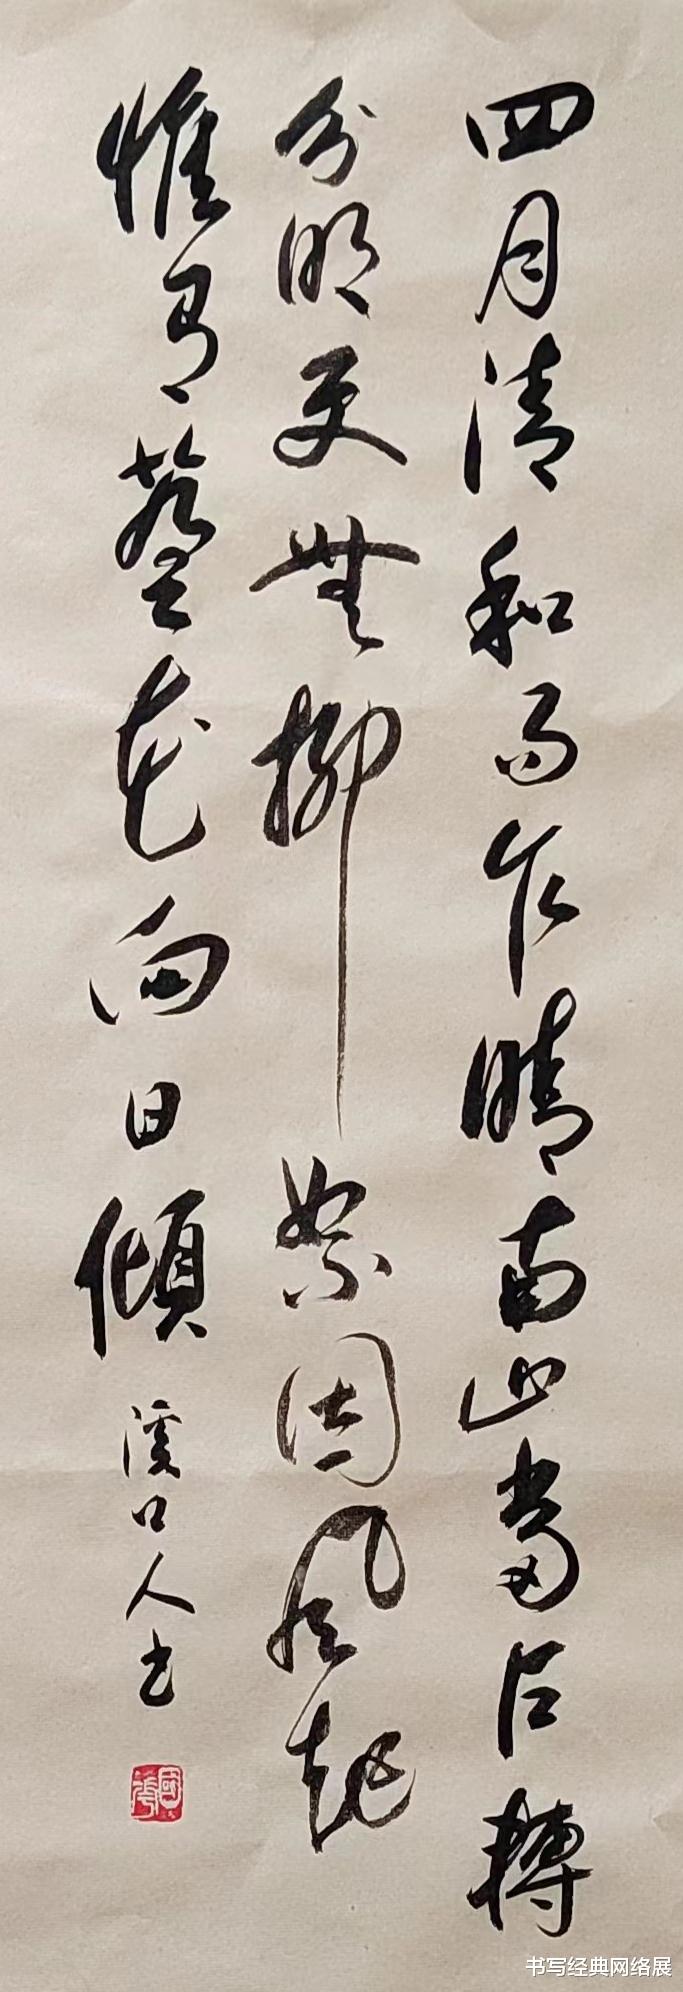 四月清和雨乍晴南山當户轉
分明更無柳絮因風起
惟有葵花向日傾
溪口人书
书写经典网络展